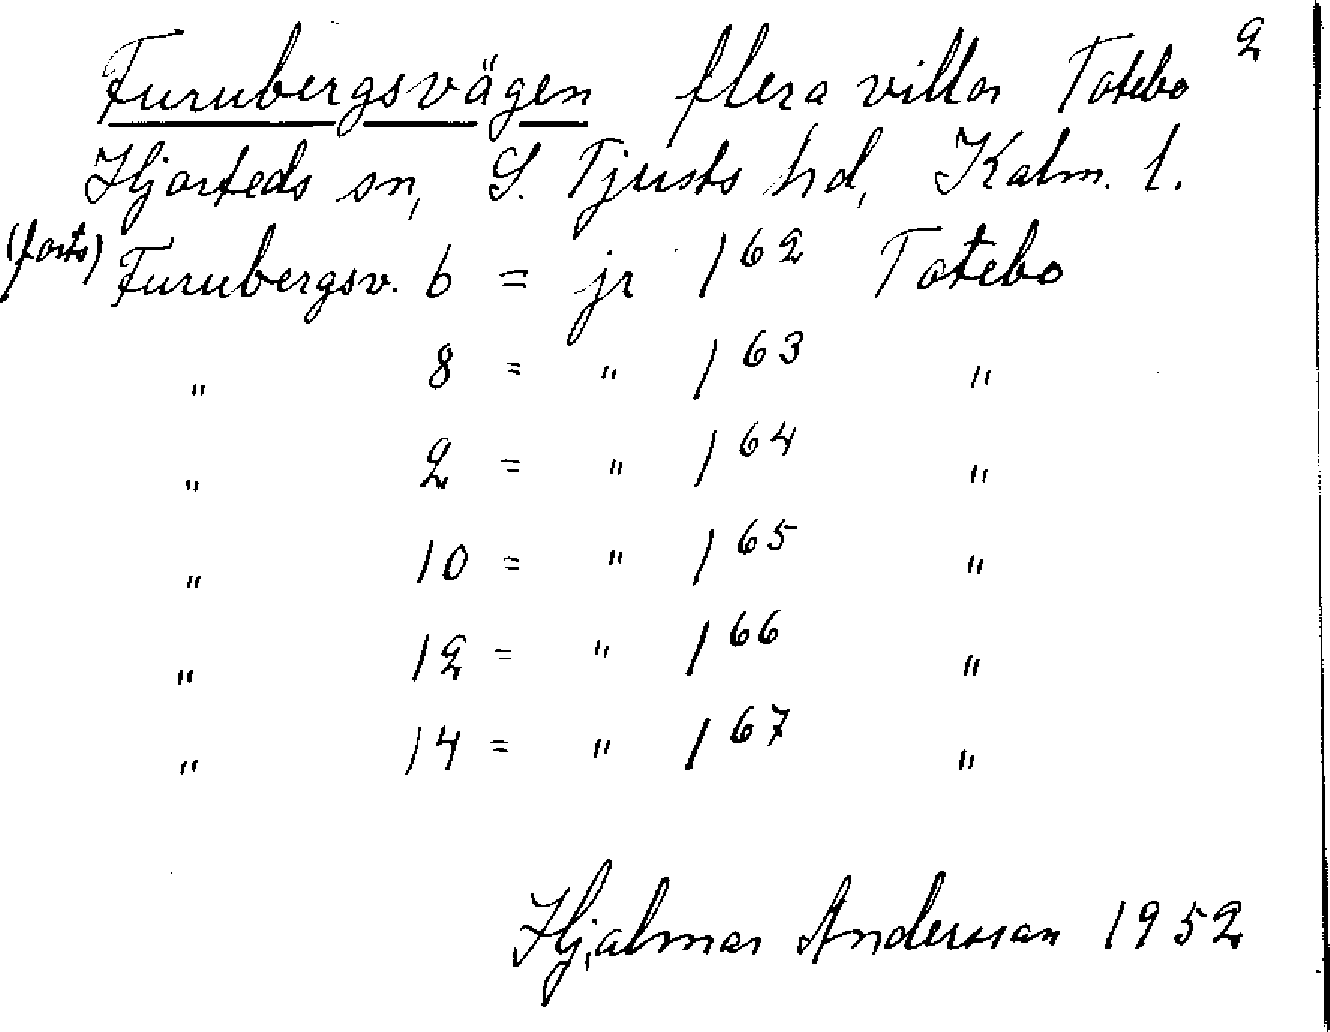 Furubergsvägen flera villor Totebo 2
Hjorteds sn, S. Tjusts hd, Kalm. l.
(forts) Furubergsv. 6 = jr 1⁶² Totebo
" 8 = " 1⁶³ "
" 2 = " 1⁶⁴ "
" 10 = " 1⁶⁵ "
" 12 = " 1⁶⁶ "
" 14 = " 1⁶⁷ "
Hjalmar Andersson 1952